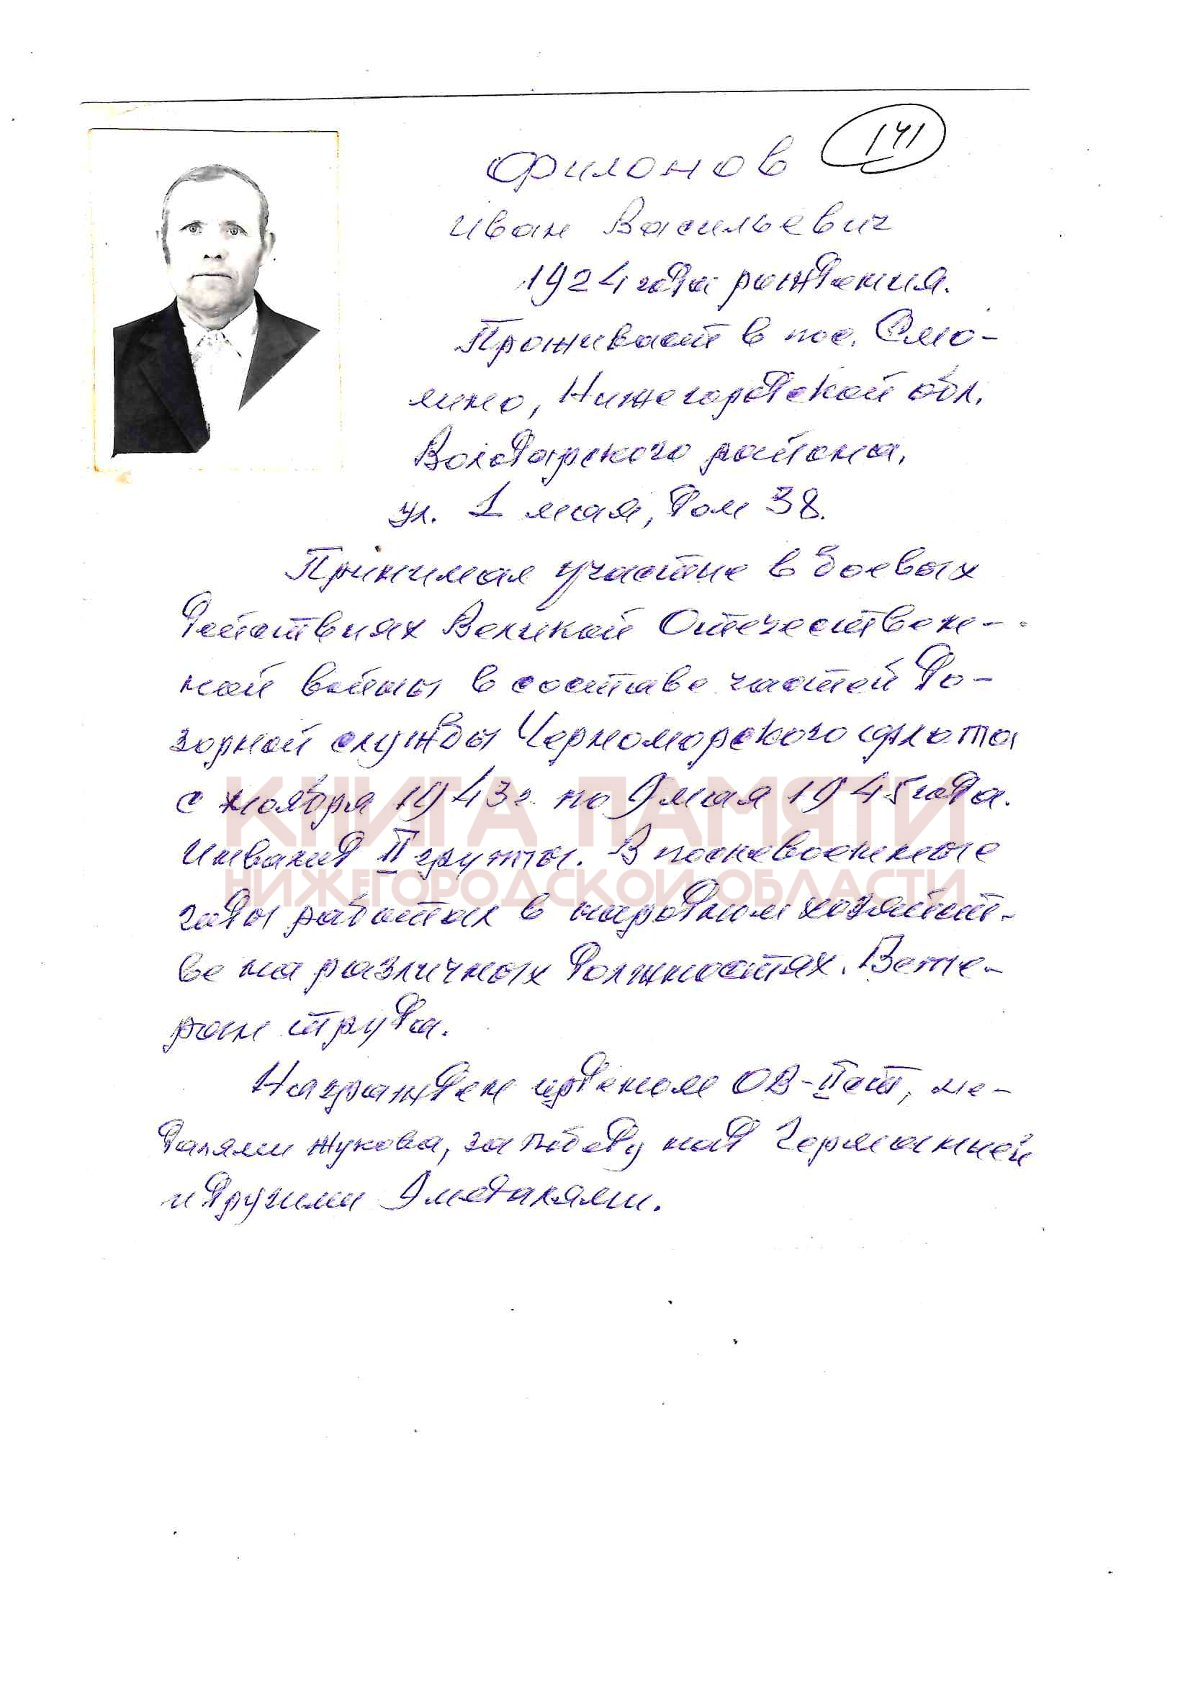 141
Филонов
Иван Васильевич
1924 года рождения.
Проживает в пос. Смо-
лино, Нижегородской обл.
Володарского района,
ул. 1 мая, дом 38.
Принимал участие в боевых
действиях Великой Отечествен-
ной войны в составе частей до-
зорной службы Черноморского флота
с ноября 1943г. по 9 мая 1945 года.
КНИГА ПАМЯТИ
Инвалид II группы. В послевоенные
НИЖЕГОРОДСКОЙ ОБЛАСТИ
годы работал в народном хозяйст-
ве на различных должностях. Вете-
ран труда.
Награжден орденом ОВ-II ст, ме-
далями Жукова, за победу над Германией
и другими 9 медалями.